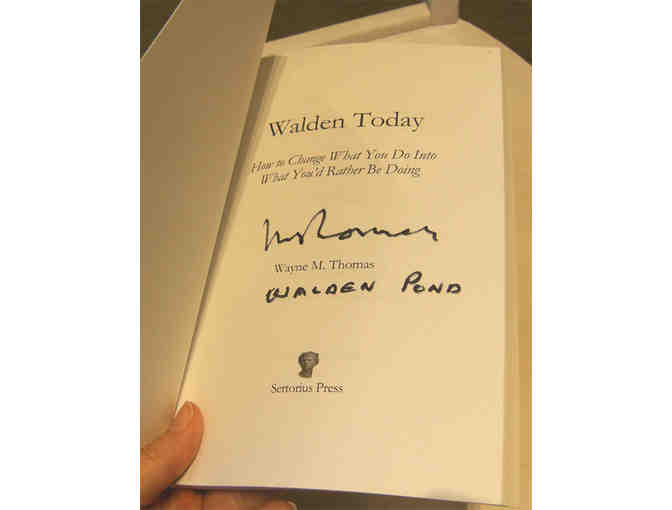 Walden Today
How to Change What You Do Into
What You'd Rather Be Doing
Wayne M. Thomas
WALDEN POND
Sertorius Press